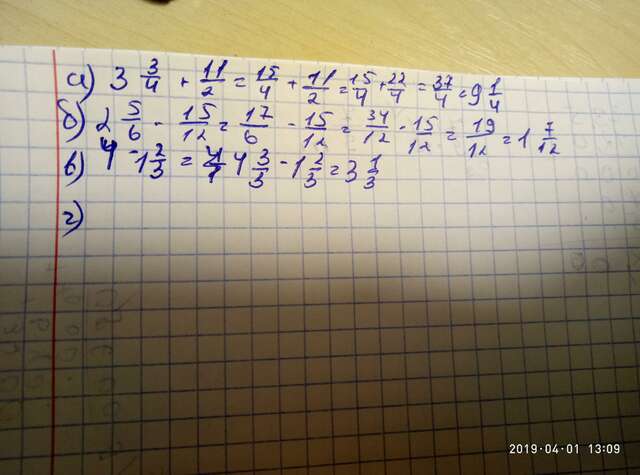 а) 3 3/4 + 11/2 = 15/4 + 11/2 = 15/4 + 22/4 = 37/4 = 9 1/4
б) 2 5/6 - 15/12 = 17/6 - 15/12 = 34/12 - 15/12 = 19/12 = 1 7/12
в) 4 - 1 2/3 = 4 3/3 - 1 2/3 = 3 1/3
г)
2019-04-01 13:09